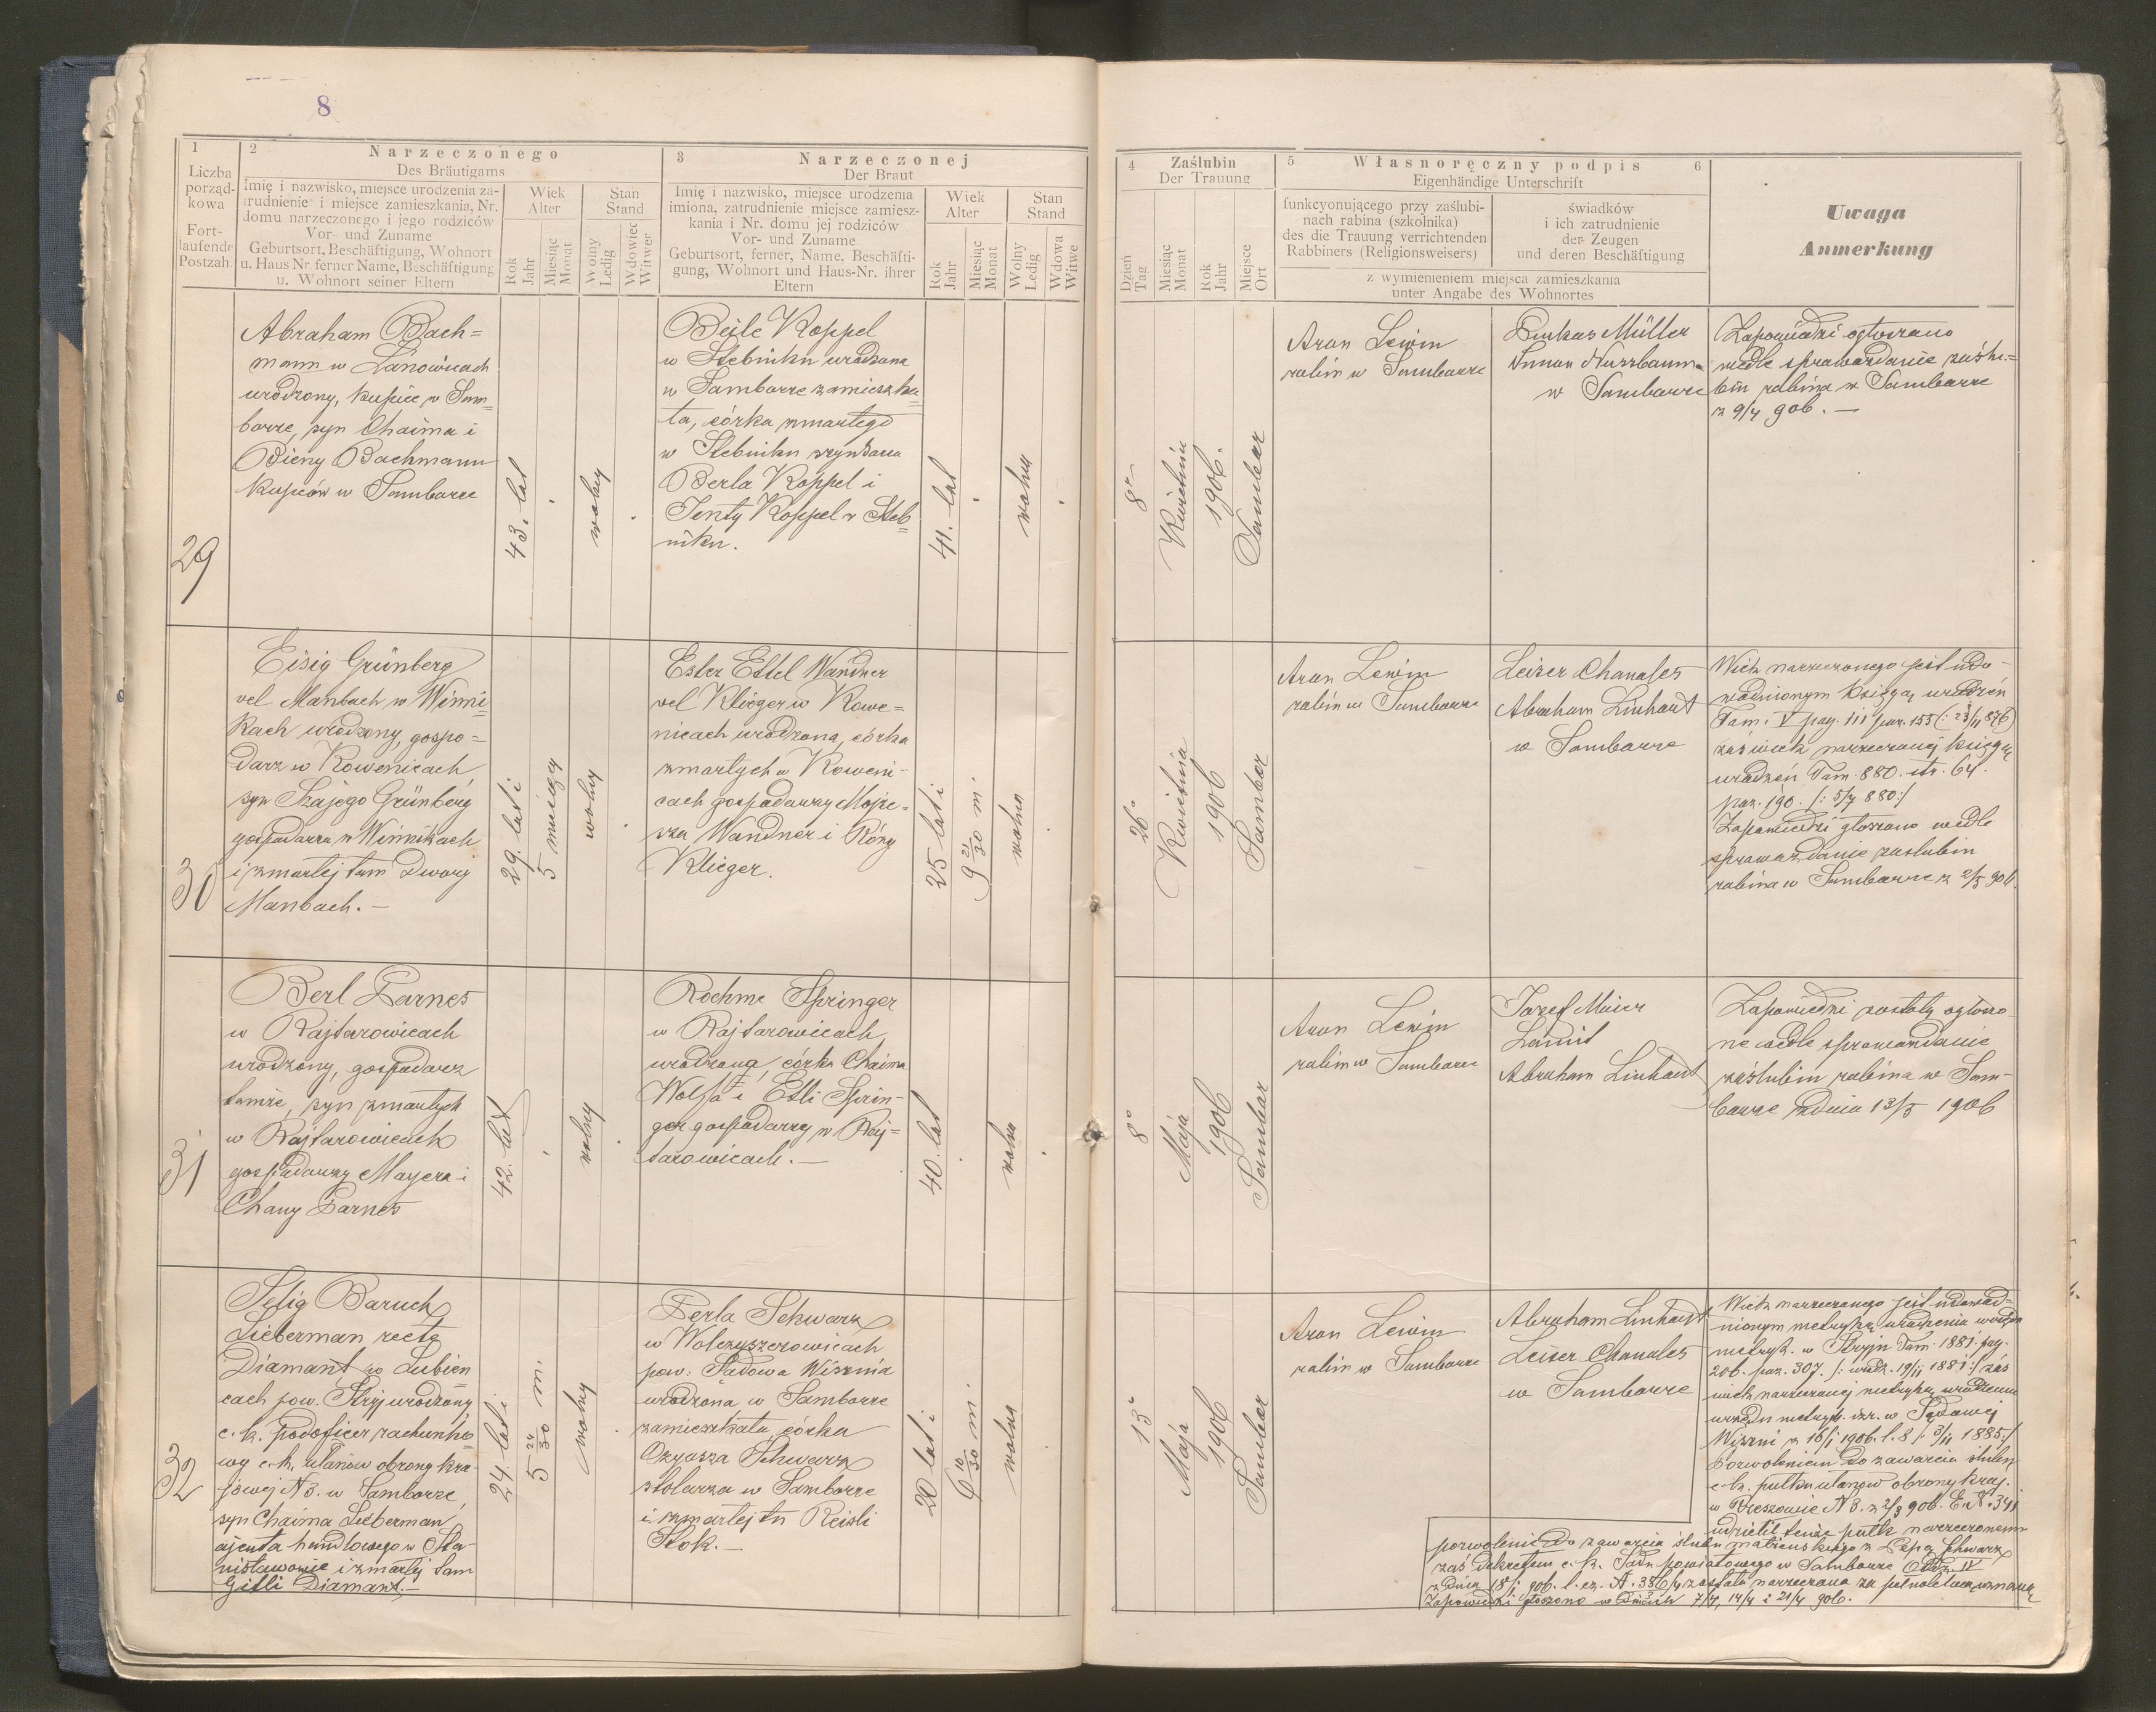 8
1
Liczba
porząd-
kowa
Fort-
laufende
Postzah.
2
Narzeczonego
Des Bräutigams
Imię i nazwisko, miejsce urodzenia za-
trudnienie i miejsce zamieszkania, Nr.
domu narzeczonego i jego rodziców
Vor- und Zuname
Geburtsort, Beschäftigung, Wohnort
u. Haus Nr ferner Name, Beschäftigung
u. Wohnort seiner Eltern
Wiek
Alter
Rok
Jahr
Miesiąc
Monat
Stan
Stand
Wolny
Ledig
Wdowiec
Witwer
3
Narzeczonej
Der Braut
Imię i nazwisko, miejsce urodzenia
imiona, zatrudnienie miejsce zamiesz-
kania i Nr. domu jej rodziców
Vor- und Zuname
Geburtsort, ferner, Name, Beschäfti-
gung, Wohnort und Haus-Nr. ihrer
Eltern
Wiek
Alter
Rok
Jahr
Miesiąc
Monat
Stan
Stand
Wolny
Ledig
Wdowa
Witwe
4
Zaślubin
Der Trauung
Dzień
Tag
Miesiąc
Monat
Rok
Jahr
Miejsce
Ort
5
Własnoręczny podpis
6
Eigenhändige Unterschrift
funkcyonującego przy zaślubi-
nach rabina (szkolnika)
des die Trauung verrichtenden
Rabbiners (Religionsweisers)
świadków
i ich zatrudnienie
der Zeugen
und deren Beschäftigung
z wymienieniem miejsca zamieszkania
unter Angabe des Wohnortes
Uwaga
Anmerkung
29
Abraham Bach=
mann w Łanowicach
urodzony, kupiec w Sam=
borze, syn Chaima i
Bieny Bachmann
kupców w Samborze
43. lat
wolny
Beile Koppel
w Stebniku urodzona
w Samborze zamieszka=
ła, córka zmarłego
w Stebniku szynkarza
Berla Koppel i
Jenty Koppel w Steb=
niku.
41. lat
wolna
8
Kwietnia
1906.
Sambor
Aron Lewin
rabin w Samborze
Pinkas Müller
Nussbaum
w Samborze
Zapowiedzi ogłoszono
wedle sprawozdanie zaślu=
bin rabina w Samborze
z 9/4 906. —
30
Eisig Grünberg
vel Manbach w Winni=
kach urodzony, gospo=
darz w Kowenicach
syn Szajego Grünberg
gospodarza w Winnikach
i zmarłej tam Dwory
Manbach. —
29. lat i
5 miesięcy
wolny
Ester Ettel Wandner
vel Klieger w Kowe=
nicach urodzona, córka
zmarłych w Koweni-
cach gospodarzy Mojże=
sza Wandner i Rózy
Klieger.
25 lat i
9 21/30 m.
wolna
26
Kwietnia
1906
Sambor
Aron Lewin
rabin w Samborze
Leizer Chanales
Abraham Linhard
w Samborze
Wiek narzeczonego jest udo-
wodnionym księgą urodzeń
Tom. V pag. 111 poz. 155 (: 23/11 876)
zaś wiek narzeczonej księgą
urodzeń Tom. 880. str. 64.
poz. 190. /: 5/7 880:/
Zapowiedzi głoszono wedle
sprawozdanie zaslubin
rabina w Samborze z 2/5 906.
31
Berl Parnes
w Rajtarowicach
urodzony, gospodarz
tamże, syn zmarłych
w Rajtarowicach
gospodarzy Mayera i
Chany Parnes
42. lat
wolny
Rochme Springer
w Rajtarowicach
urodzona, córka Chaima
Wolfa i Etli Sprin-
ger gospodarzy w Raj=
tarowicach. —
40. lat
wolna
8
Maja
1906
Sambor
Aron Lewin
rabin w Samborze
Jozef Maier
Abraham Linhard
Zapowiedzi zostały ogłoszo-
ne wedle sprawozdanie
zaślubin rabina w Sam-
borze z dnia 13/5 1906
32
Selig Baruch
Lieberman recte
Diamant, w Lubien
cach pow. Stryj urodzony
c. k. podoficer rachunko=
wy c. k. ułanów obrony kra-
jowej N 3. w Samborze,
syn Chaima Lieberman
ajenta handlowego w Sta-
nisławowie i zmarłej tam
Gitli Diamant. —
24. lat i
5 24/30 m.
wolny
Perla Schwarz
w Wolczyszczowicach
pow: Sądowa Wisznia
urodzona w Samborze
zamieszkała, córka
Ozyasza Schwarz
stolarza w Samborze
i zmarłej tu Reisli
Stok. —
20 lat i
6 10/30 m.
wolna
13
Maja
1906
Sambor
Aron Lewin
rabin w Samborze
Abraham Linhard
Leiser Chanales
w Samborze
Wiek narzeczonego jest udowod=
nionym metryką urodzenia urzędu
metryk. w Stryju Tom. 1881. pag.
206. poz. 307. /: urodz. 19/11 1881:/ zaś
wiek narzeczonej metryką urodzenia
urzędu metryk. izr. w Sądowej
Wiszni z 16/1 1906. l. 8 /: 3/11 1885:/
Pozwoleniem do zawarcia ślubu
c. k. pułku ułanów obrony kraj.
w Rzeszowie N 3. z 2/3 906. E. N. 341
udzielił tenże pułk narzeczonemu
pozwolenie do zawarcia ślubu małżeńskiego z Pepą Schwarz
zaś dekretem c. k. Sądu powiatowego w Samborze Odd. IV
z dnia 18/1 906. l. cz. została narzeczona za pełnoletnią uznaną
Zapowiedzi głoszono w dniach 7/4, 14/4 i 21/4 906.